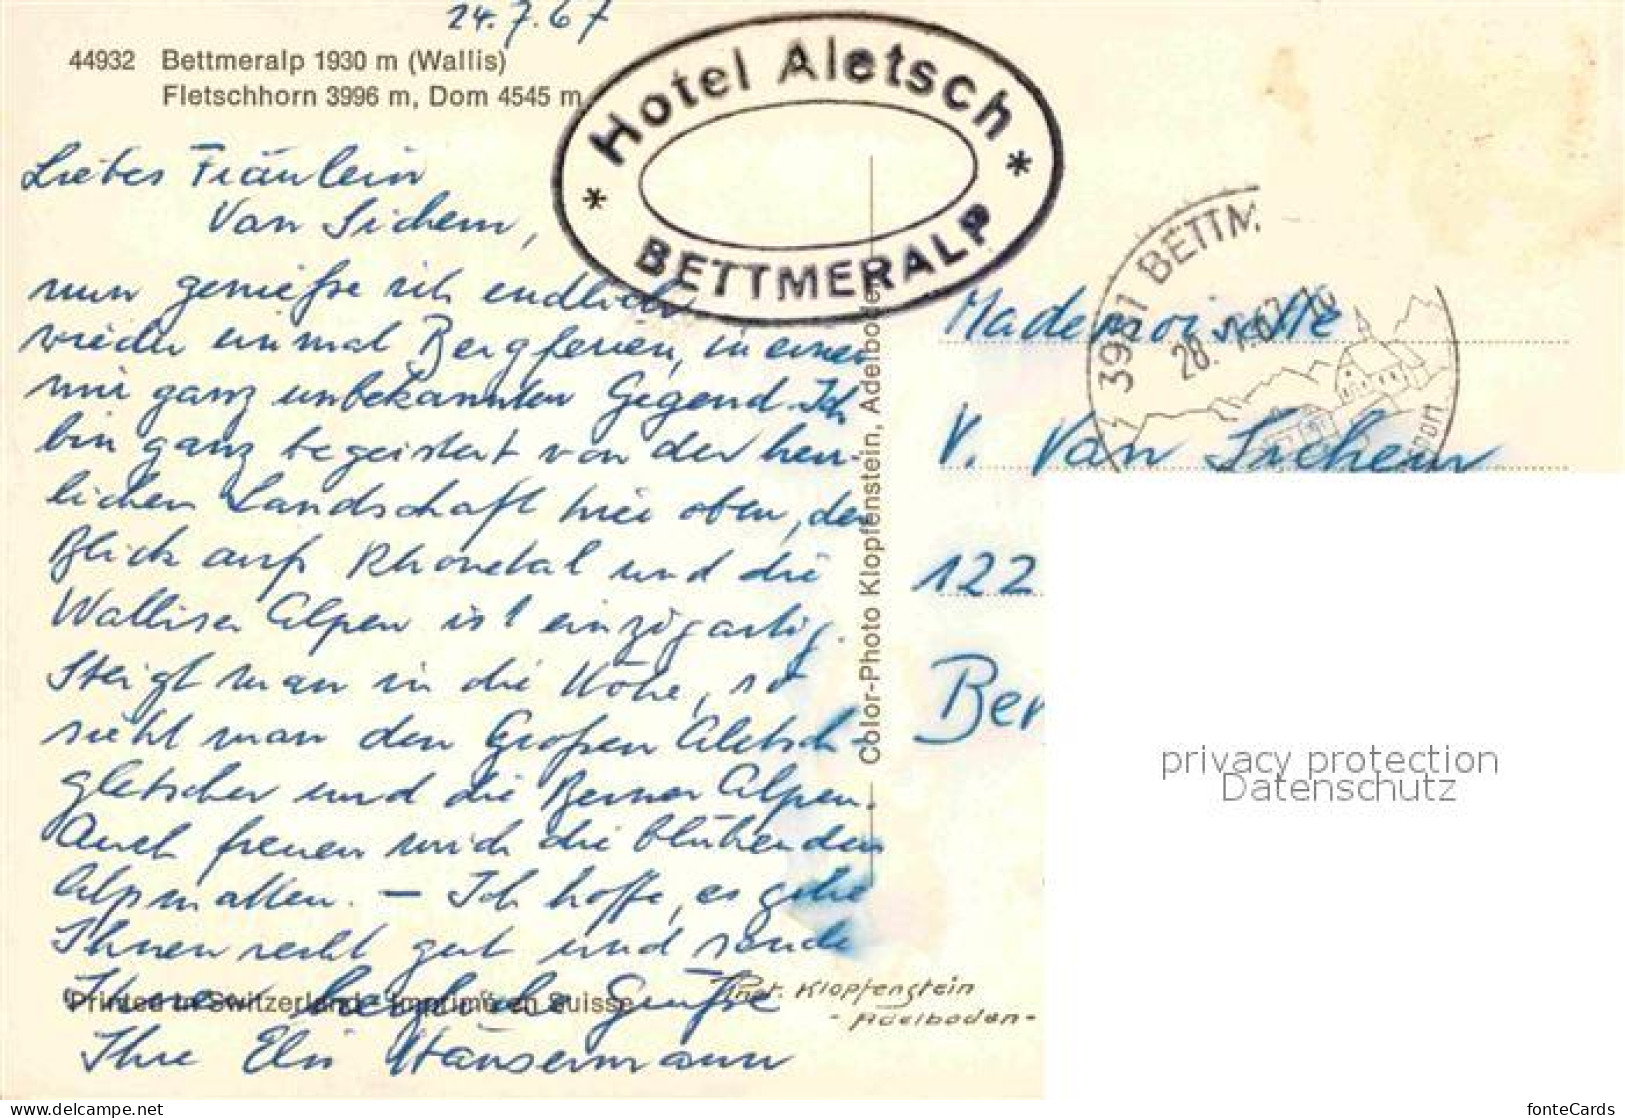 24.7.67
44932 Bettmeralp 1930 m (Wallis)
Fletschhorn 3996 m, Dom 4545 m
Hotel Aletsch
* *
BETTMERALP
Liebes Fräulein
Van Sichem,
nun genieße ich endlich
wieder einmal Bergferien, in einer
mir ganz unbekannten Gegend. Ich
bin ganz begeistert von der herr-
lichen Landschaft hier oben, der
Blick aufs Rhonetal und die
Walliser Alpen ist einzigartig.
Steigt man in die Höhe, so
sieht man den Großen Aletsch-
gletscher und die Berner Alpen.
Auch freuen mich die blühenden
Alpmatten. – Ich hoffe, es gehe
Ihnen recht gut und sende
Ihnen herzliche Grüße
Ihre Elsi Häusermann
Printed in Switzerland - Imprimé en Suisse
Color-Photo Klopfenstein, Adelboden
Phot. Klopfenstein
- Adelboden -
3981 BETTM
28.7.67
Mademoiselle
V. Van Sichem
122
Ber
privacy protection
Datenschutz
www.delcampe.net
fonteCards